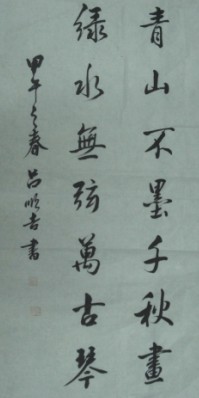 青山不墨千秋畫
绿水無弦萬古琴
甲午之春 吕順吉書